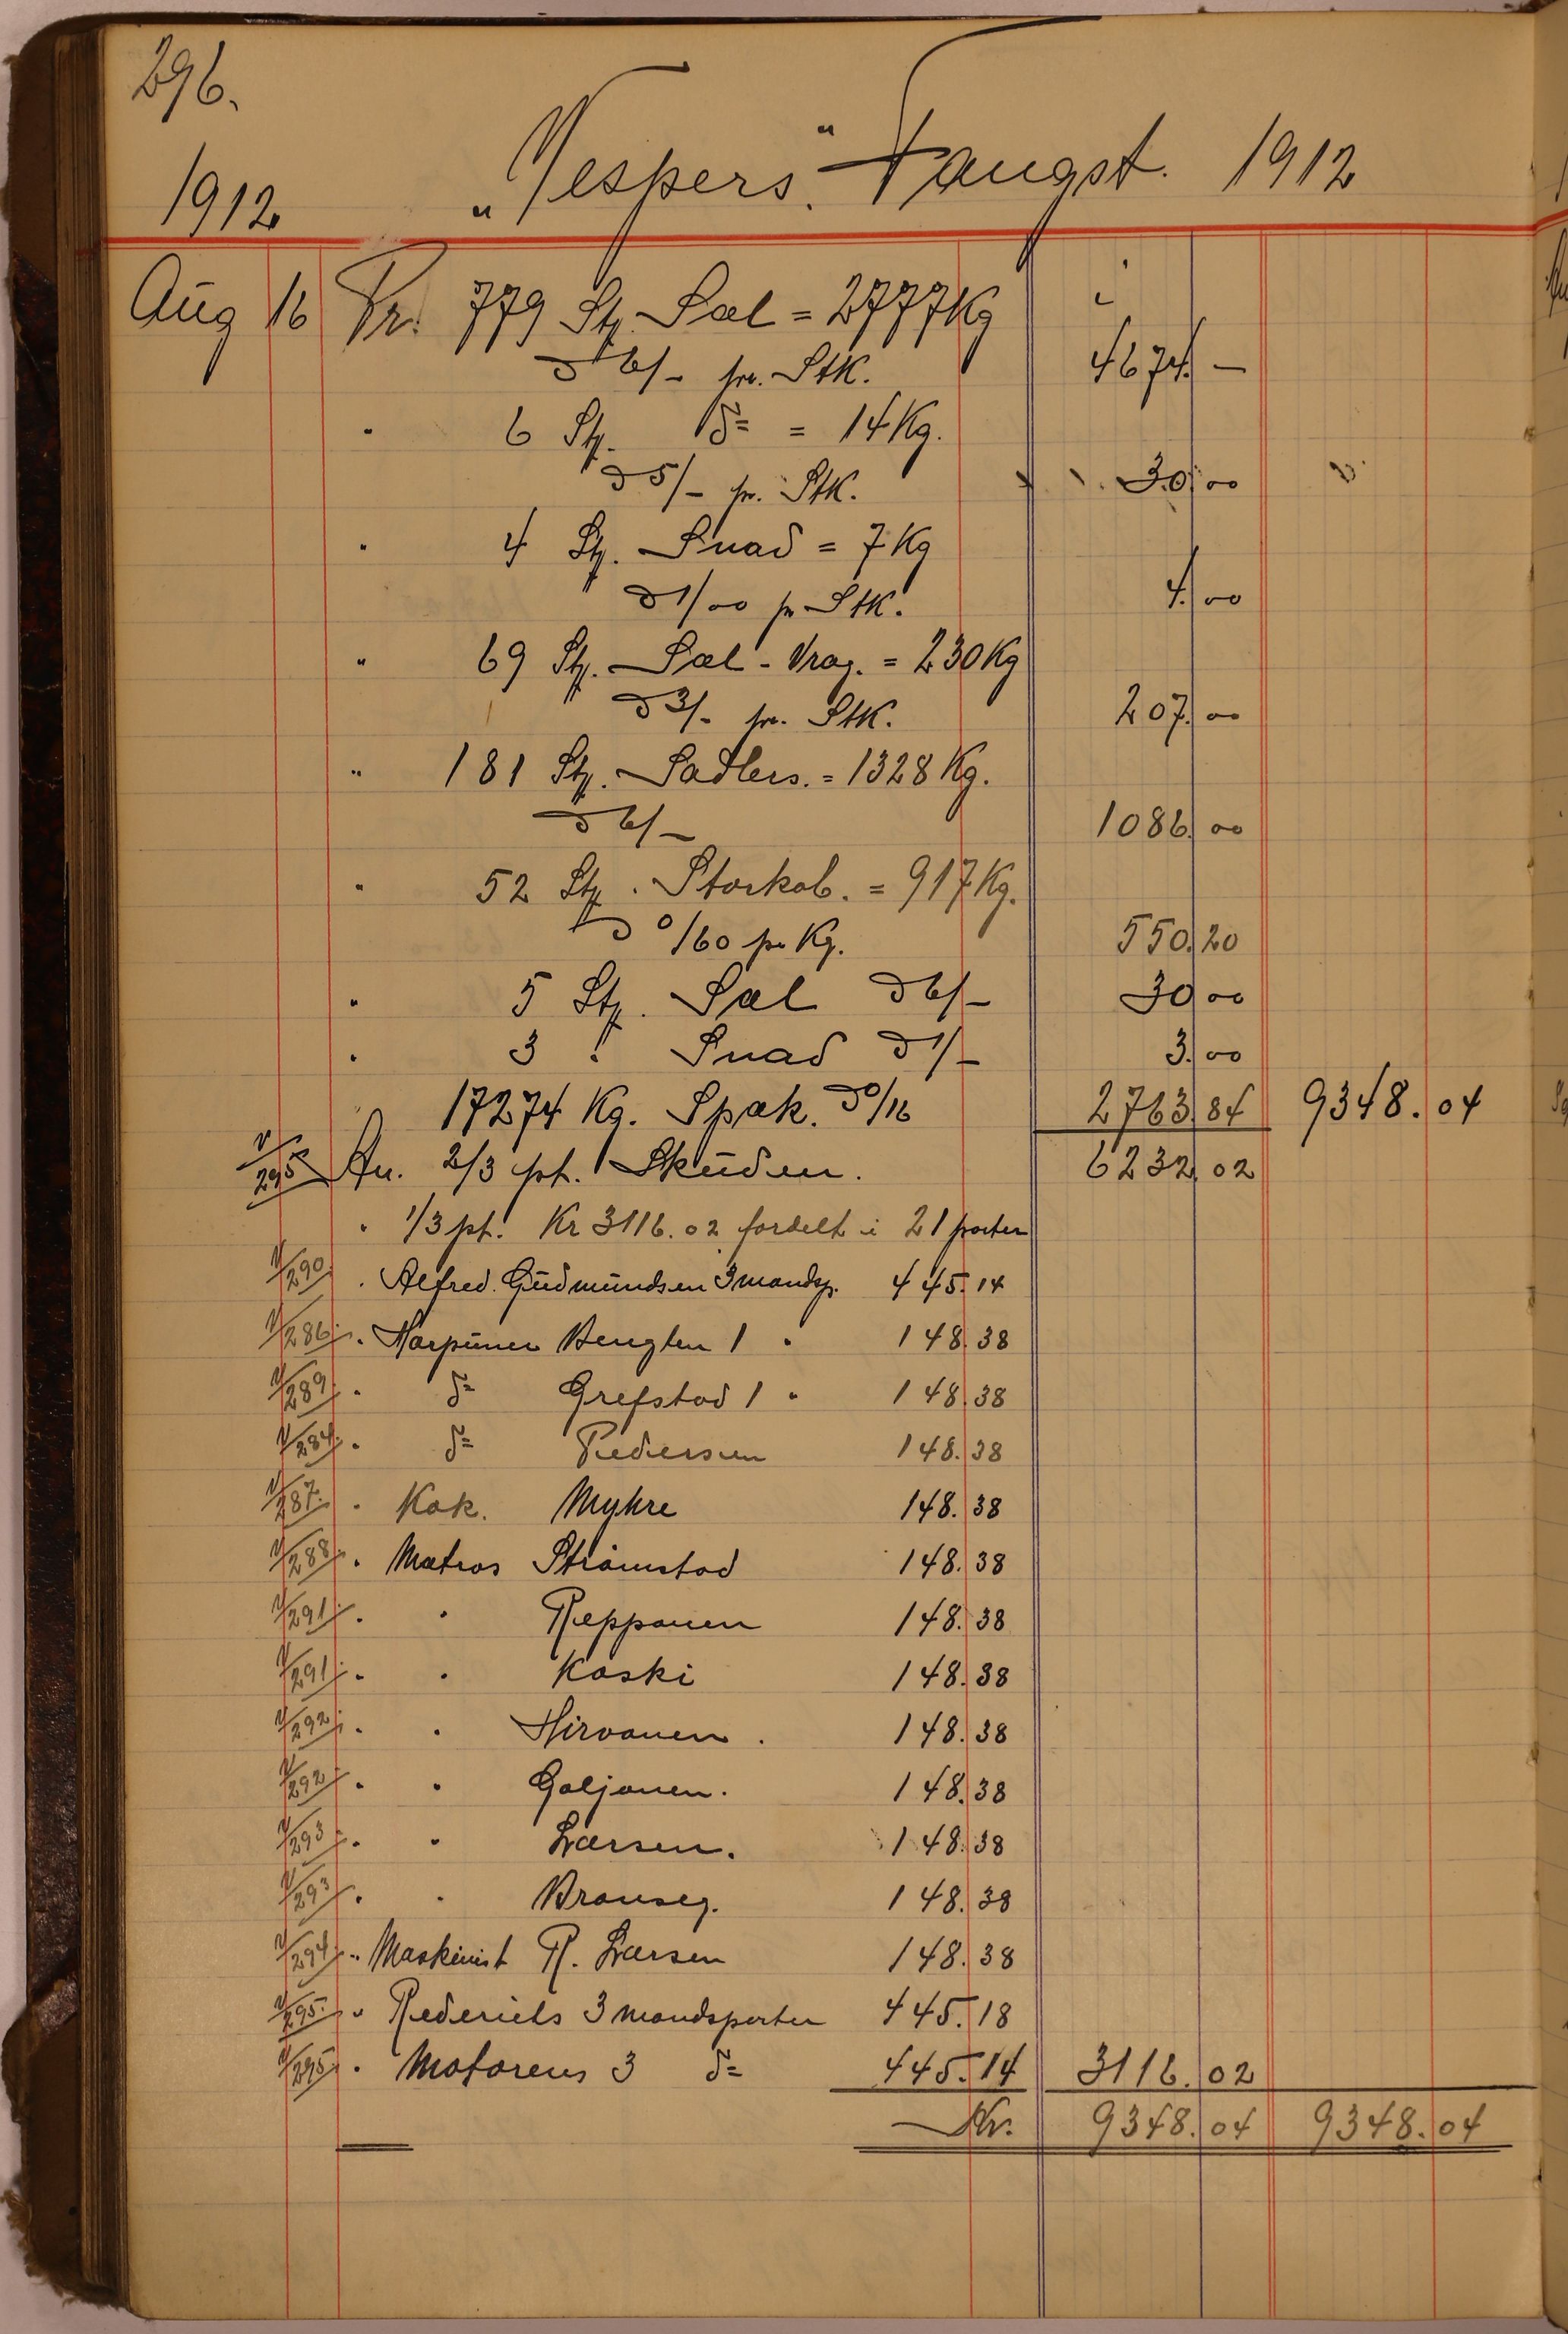 296.
1912 „Vespers“ Fangst. 1912
Aug 16 Pr. 779 St. Sæl = 2777 Kg
à 6/- pr. Stk. 4674. —
" 6 St. do = 14 Kg.
à 5/- pr. Stk. 30.00
" 4 St. Snad = 7 Kg
à 1/00 pr Stk. 4.00
" 69 St. Sæl - Vrag. = 230 Kg
à 3/- pr. Stk. 207.00
" 181 St. Sadlers. = 1328 Kg.
à 6/- 1086.00
" 52 St. Storkob. = 917 Kg.
à 0/60 pr Kg. 550.20
" 5 St. Sæl à 6/- 30.00
" 3 " Snad à 1/- 3.00
17274 Kg. Spæk. à 0/16 2763.84 9348.04
V/295 An. 2/3 pt. Skuden. 6232.02
" 1/3 pt. Kr 3116.02 fordelt i 21 parter
V/290 " Alfred Gudmundsen 3 mandsp. 445.14
V/286 " Harpuner Bengten 1 " 148.38
V/289 " do Grefstad 1 " 148.38
V/284 " do Pedersen 148.38
V/287 " Kok. Myhre 148.38
V/288 " Matros Strømstad 148.38
V/291 " " Repponen 148.38
V/291 " " Koski 148.38
V/292 " " Hirvonen. 148.38
V/292 " " Goljonen. 148.38
V/293 " " Larsen. 148.38
V/293 " " 148.38
V/294 " Maskinist R. Larsen 148.38
V/295 " Rederiets 3 mandsparter 445.18
V/295 " Motorens 3 do 445.14 3116.02
Kr. 9348.04 9348.04